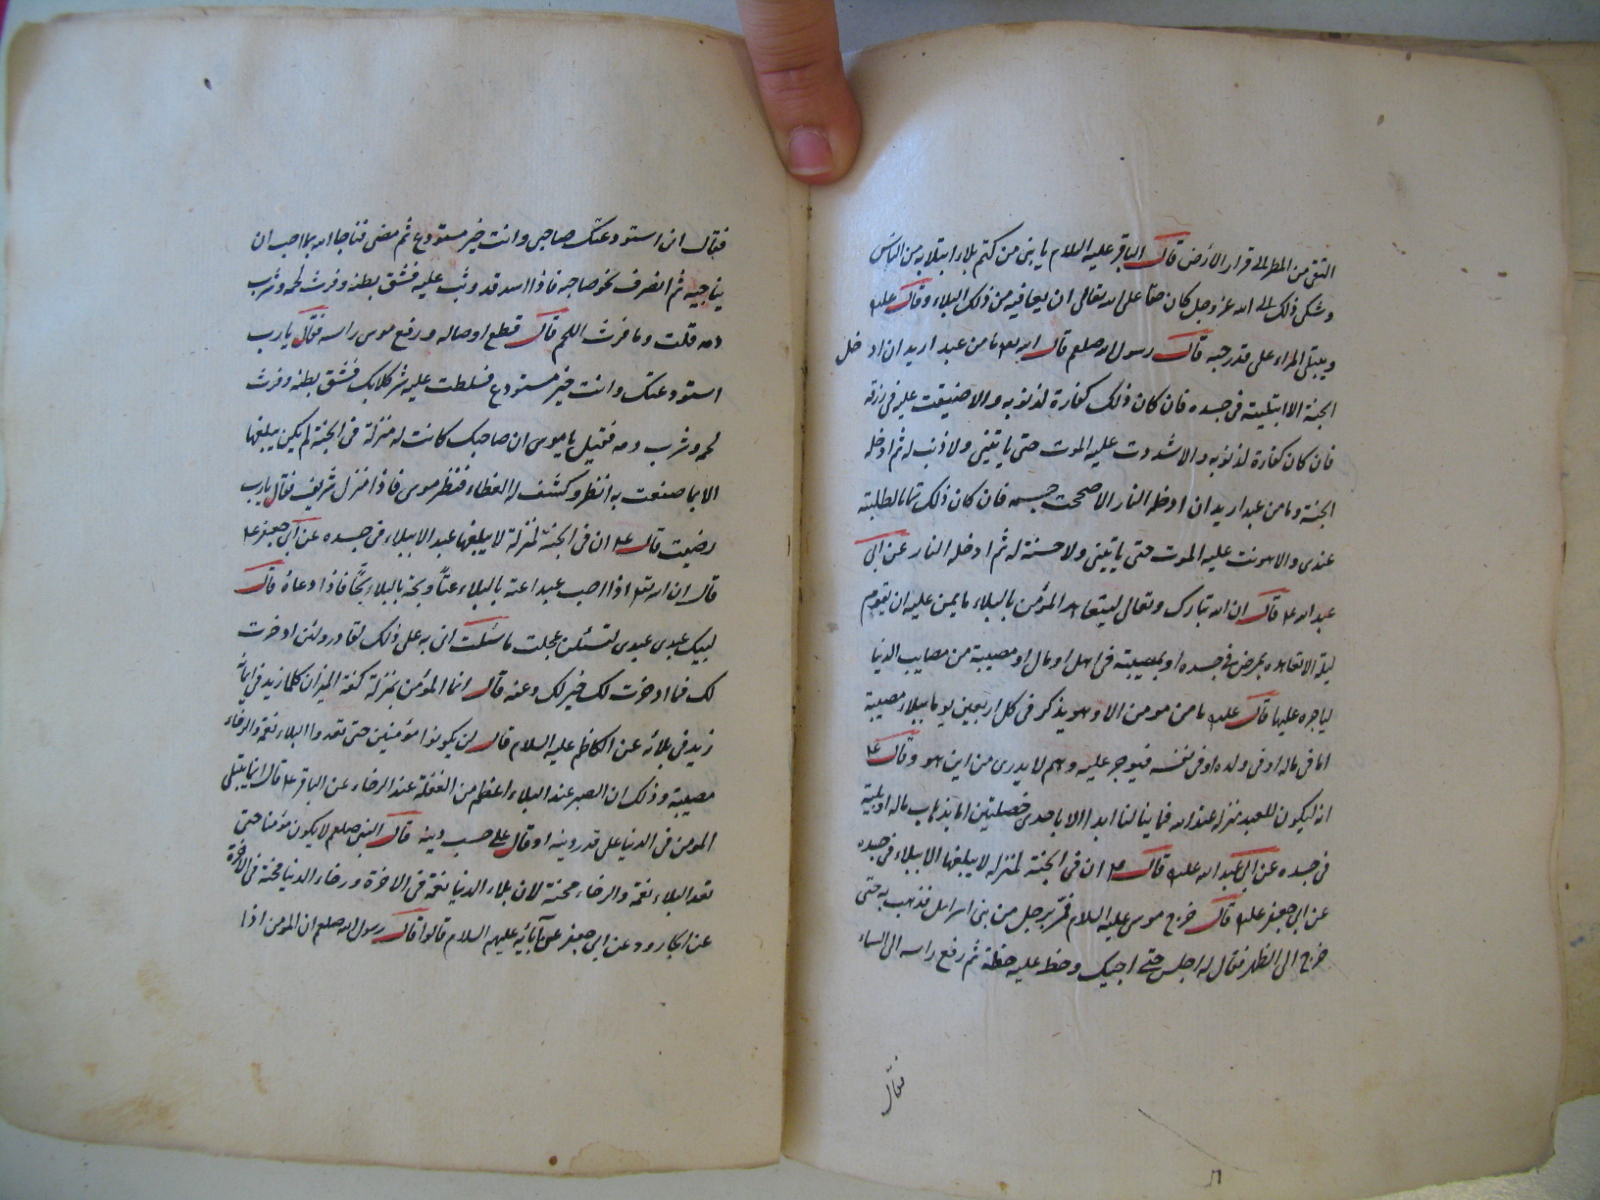 التقى من المطر الى قرار الارض قال الباقر عليه السلام يا بنى من كتم بلاء ابتلا به من الناس
وشكى ذلك الى الله عز وجل كان حقا على الله تعالى ان يعافيه من ذلك البلاء وقال عليه
ويبتلى المراء على قدر حبه قال رسول الله صلعم قال الله تعه ما من عبد اريد ان ادخل
الجنة الا ابتليته فى جسده فان كان ذلك كفارة لذنوبه والا ضيقت عليه فى رزقه
فان كان كفارة لذنوبه والا شددت عليه الموت حتى ياتينى ولا ذنب له ثم ادخله
الجنة وما من عبد اريد ان ادخله النار الا صححت جسمه فان كان ذلك تماما لطلبته
عندى والا هونت عليه الموت حتى ياتينى ولا حسنة له ثم ادخله النار عن ابى
عبد الله ع قال ان الله تبارك وتعالى ليتعاهد المؤمن بالبلاء ما يمن عليه ان يقوم
ليلة الا تعاهده بمرض فى جسده او بمصيبة فى اهل او مال او مصيبة من مصايب الدنيا
لياجره عليها قال عليه ما من مومن الا وهو يذكر فى كل اربعين يوما ببلاء مصيبة
اما فى ماله او فى ولده او فى نفسه فيوجر عليه وهم لا يدرى من اين هو وقال ع
انه ليكون للعبد منزلة عند الله فما ينالها ابدا الا باحدى خصلتين اما بذهاب ماله او بلية
فى جسده عن ابى عبد الله عليه قال ان فى الجنة لمنزلة لا يبلغها الا ببلاء فى جسده
عن ابى جعفر عليه قال خرج موسى عليه السلام فمر برجل من بنى اسرايل فذهب به حتى
خرج الى الظهر فقال له اجلس حتى اجيك وخط عليه خطة ثم رفع راسه الى السماء
فقال
فقال انى استودعتك صاحبى وانت خير مستودع ثم مضى فناجاه الله بما احب ان
يناجيه ثم انصرف نحو صاحبه فاذا اسد قد وثب عليه فشق بطنه وفرث لحمه وشرب
دمه قلت وما فرث اللحم قال قطع اوصاله ورفع موسى راسه فقال يا رب
استودعتك وانت خير مستودع فسلطت عليه شر كلابك فشق بطنه وفرث
لحمه وشرب دمه فقيل يا موسى ان صاحبك كانت له منزلة فى الجنة لم يكن يبلغها
الا بما صنعت به انظر وكشف له الغطاء فنظر موسى فاذا منزل شريف فقال يا رب
رضيت قال ع ان فى الجنة لمنزلة لا يبلغها عبد الا ببلاء فى جسده عن ابى جعفر ع
قال ان الله تعه اذا احب عبدا غته بالبلاء غتا وبجه بالبلاء بجا فاذا دعاه قال
لبيك عبدى عبدى لئن عجلت ما سئلت انى به على ذلك لقادر ولئن ادخرت
لك فما ادخرت لك خير لك وعنه قال انما المؤمن بمنزلة كفة الميزان كلما زيد فى ايمانه
زيد فى بلائه عن الكاظم عليه السلام قال لن يكونوا مؤمنين حتى تعدوا البلاء نعمة والرخاء
مصيبة وذلك ان الصبر عند البلاء اعظم من الغفلة عند الرخاء عن الباقر ع قال انما يبتلى
المومن فى الدنيا على قدر دينه او قال على حسب دينه قال النبى صلعم لا يكون مؤمنا حتى
تعد البلاء نعمة والرخاء محنة لان بلاء الدنيا نعمة فى الاخرة ورخاء الدنيا محنة فى الاخرة
عن الجارود عن ابى جعفر عن آبائه عليهم السلام قالوا قال رسول الله صلعم ان المومن اذا